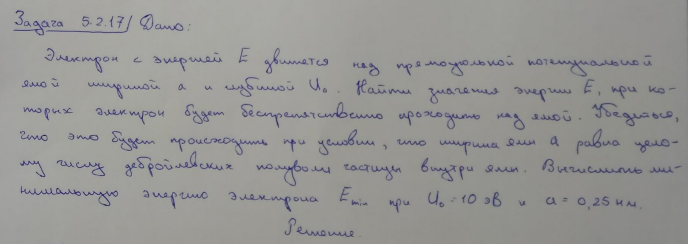 Задача 5.2.17/ Дано:
Электрон с энергией E движется над прямоугольной потенциальной
ямой шириной a и глубиной U₀. Найти значения энергии E, при ко-
торых электрон будет беспрепятственно проходить над ямой. Убедиться,
что это будет происходить при условии, что ширина ямы a равна цело-
му числу дебройлевских полуволн частицы внутри ямы. Вычислить ми-
нимальную энергию электрона E min при U₀ = 10 эВ и a = 0,25 нм.
Решение.